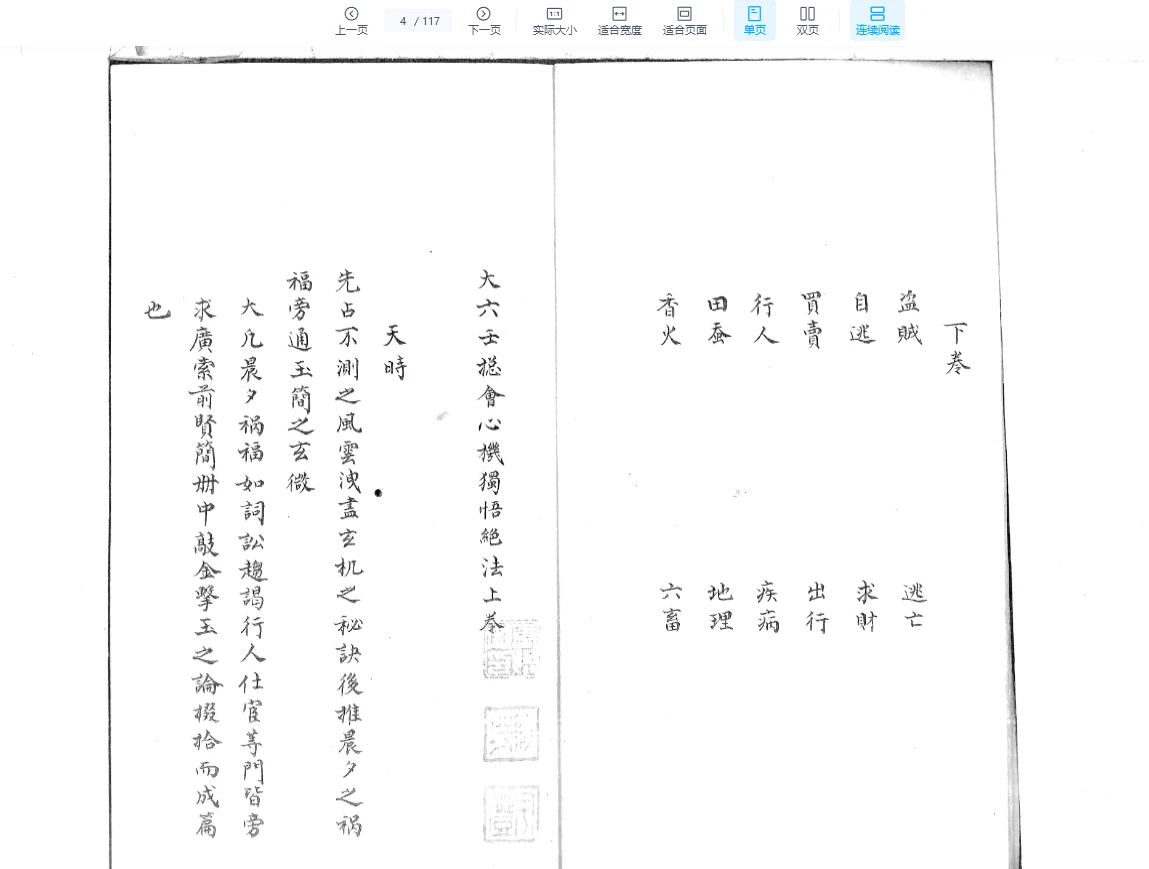 上一页
4 / 117
下一页
1:1
实际大小
适合宽度
适合页面
单页
双页
连续阅读
下卷
盜賊 逃亡
自逃 求財
買賣 出行
行人 疾病
田蚕 地理
香火 六畜
大六壬摠會心機獨悟絕法上卷
天時
先占不測之風雲洩盡玄机之秘訣後推晨夕之禍
福旁通玉簡之玄微
大凡晨夕禍福如詞訟趨謁行人仕宦等門皆旁
求廣索前賢簡册中敲金擊玉之論掇拾而成篇
也